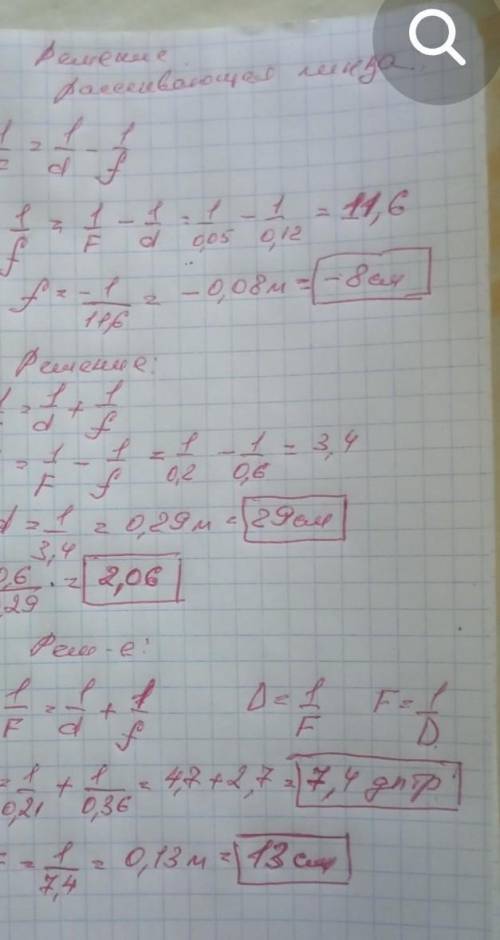 Решение
Рассеивающая линза.
1/F = 1/d - 1/f
1/f = 1/F - 1/d = 1/0,05 - 1/0,12 = 11,6
f = -1/11,6 = -0,08м = -8см
Решение:
= 1/d + 1/f
= 1/F - 1/f = 1/0,2 - 1/0,6 = 3,4
d = 1/3,4 = 0,29м = 29см
0,6/0,29 = 2,06
Реш-е:
1/F = 1/d + 1/f D = 1/F F = 1/D
= 1/0,21 + 1/0,36 = 4,7 + 2,7 = 7,4 дптр
F = 1/7,4 = 0,13м = 13см